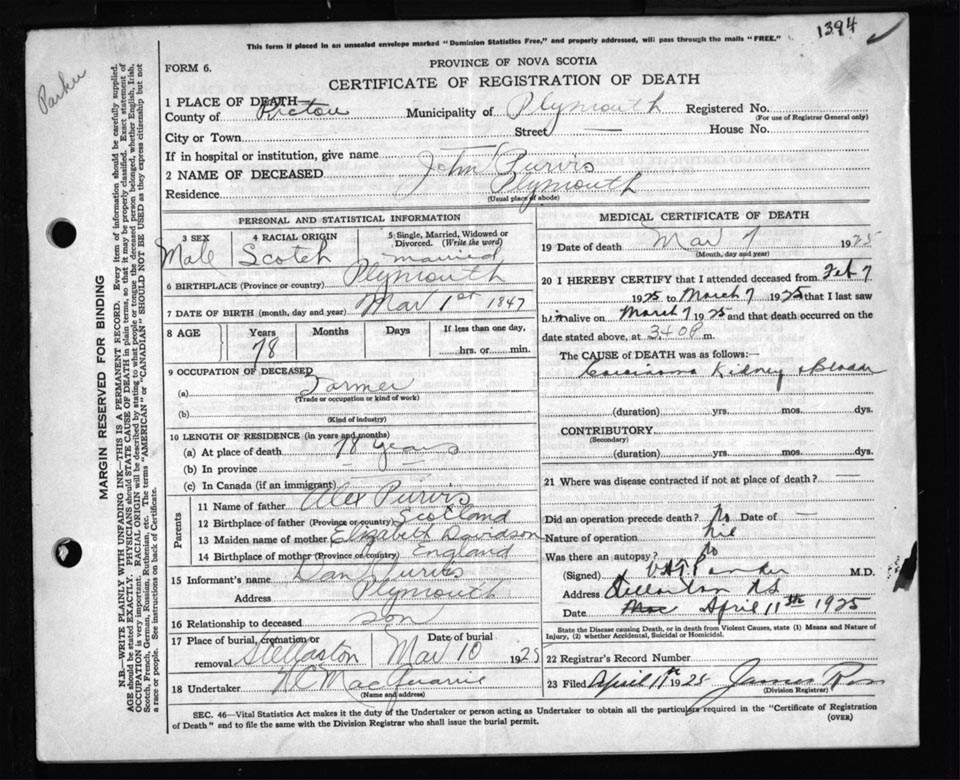 1394
Parker
This form if placed in an unsealed envelope marked "Dominion Statistics Free," and properly addressed, will pass through the mails "FREE."
PROVINCE OF NOVA SCOTIA
FORM 6.
CERTIFICATE OF REGISTRATION OF DEATH
1 PLACE OF DEATH
County of Pictou Municipality of Plymouth Registered No.
(For use of Registrar General only)
City or Town Street — House No.
If in hospital or institution, give name —
2 NAME OF DECEASED John Purvis
Residence Plymouth
(Usual place of abode)
PERSONAL AND STATISTICAL INFORMATION
3 SEX 4 RACIAL ORIGIN 5 Single, Married, Widowed or Divorced. (Write the word)
Male Scotch married
6 BIRTHPLACE (Province or country) Plymouth
7 DATE OF BIRTH (month, day and year) Mar 1st 1847
8 AGE Years Months Days If less than one day,
78 hrs. or min.
9 OCCUPATION OF DECEASED
(a) Farmer
(Trade or occupation or kind of work)
(b)
(Kind of industry)
10 LENGTH OF RESIDENCE (in years and months)
(a) At place of death 78 years
(b) In province — —
(c) In Canada (if an immigrant)
Parents
11 Name of father Alex Purvis
12 Birthplace of father (Province or country) Scotland
13 Maiden name of mother Elizabeth Davidson
14 Birthplace of mother (Province or country) England
15 Informant's name Dan Purvis
Address Plymouth
16 Relationship to deceased son
17 Place of burial, cremation or removal Stellarton Date of burial Mar 10 1925
18 Undertaker MacQuarrie
(Name and address)
MEDICAL CERTIFICATE OF DEATH
19 Date of death Mar 7 1925
(Month, day and year)
20 I HEREBY CERTIFY that I attended deceased from Feb 7
1925 to March 7 1925 that I last saw
him alive on March 7 1925 and that death occurred on
date stated above, at 3.40 P m.
The CAUSE of DEATH was as follows:—
Carcinoma Kidney & Bladder
(duration) yrs. mos. dys.
CONTRIBUTORY
(Secondary)
(duration) yrs. mos. dys.
21 Where was disease contracted if not at place of death? —
Did an operation precede death? No Date of —
Nature of operation nil
Was there an autopsy? no
(Signed) Parker M.D.
Address Stellarton N.S
Date Mar April 11th 1925
State the Disease causing Death, or in death from Violent Causes, state (1) Means and Nature of
Injury, (2) whether Accidental, Suicidal or Homicidal.
22 Registrar's Record Number
23 Filed April 11th 1925 James
(Division Registrar)
SEC. 46—Vital Statistics Act makes it the duty of the Undertaker or person acting as Undertaker to obtain all the particulars required in the "Certificate of Registration
of Death" and to file the same with the Division Registrar who shall issue the burial permit. (OVER)
MARGIN RESERVED FOR BINDING
N.B.—WRITE PLAINLY WITH UNFADING INK—THIS IS A PERMANENT RECORD. Every item of information should be carefully supplied.
AGE should be stated EXACTLY. PHYSICIANS should STATE CAUSE OF DEATH in plain terms, so that it may be properly classified. Exact statement of
OCCUPATION is very important. RACIAL ORIGIN will be described by stating to what people or tongue the deceased person belonged, whether English, Irish,
Scotch, French, German, Russian, Ruthenian, etc. The terms "AMERICAN" or "CANADIAN" SHOULD NOT BE USED as they express citizenship but not
a race or people. See instructions on back of Certificate.